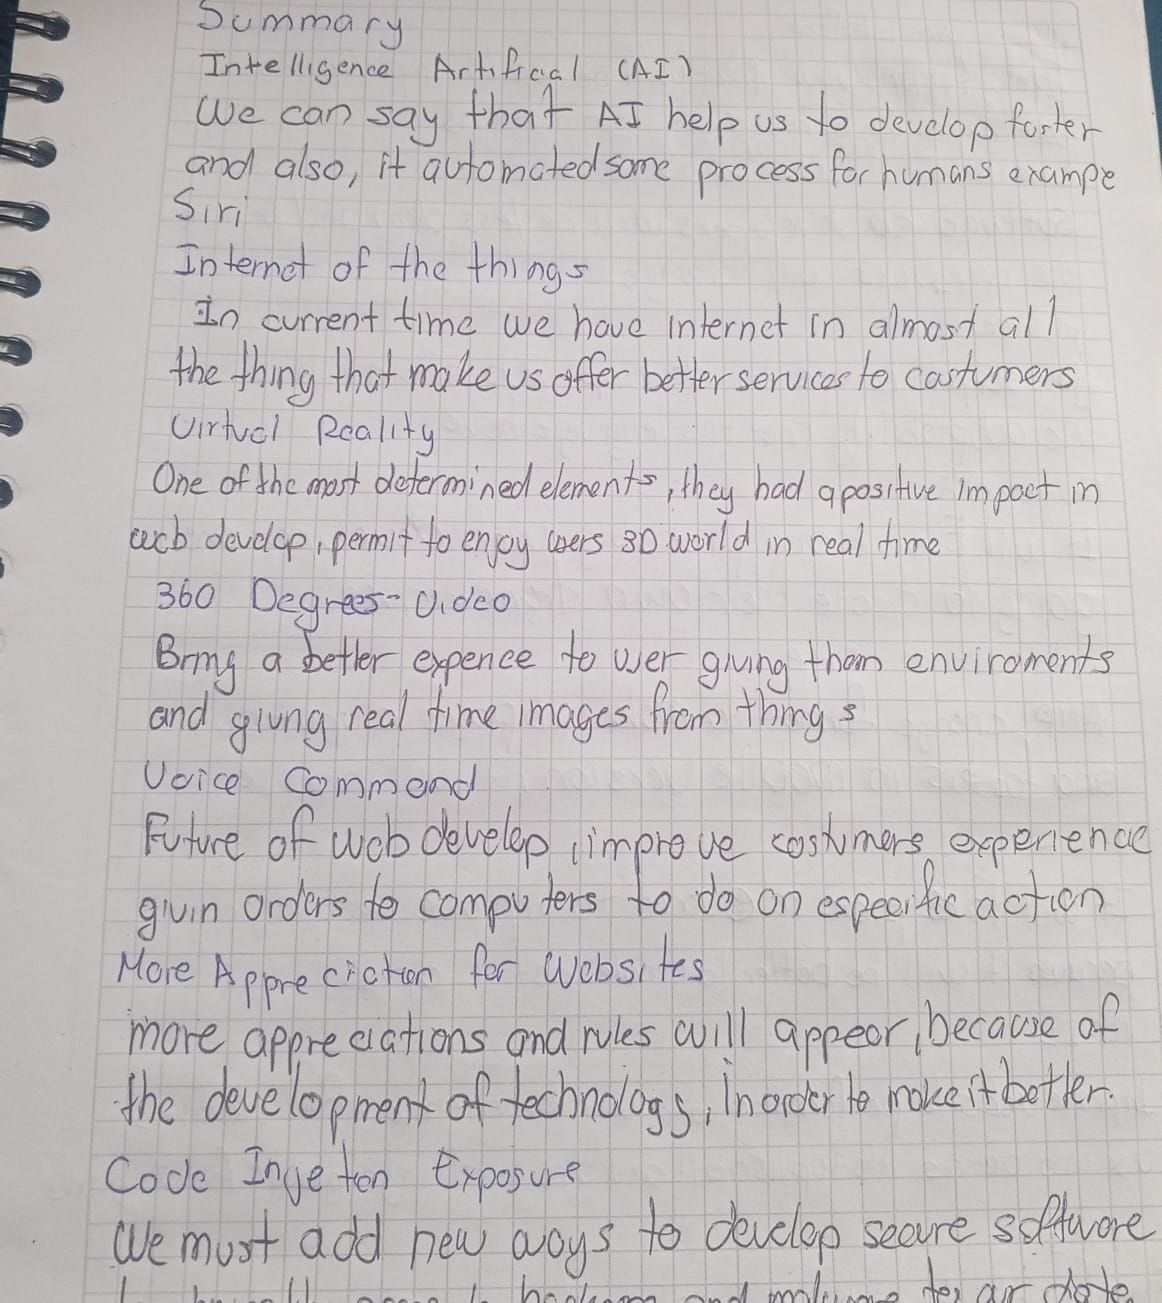 Summary
Intelligence Artificial (AI)
We can say that AI help us to develop faster
and also, it automated some process for humans exampe
Siri
Internet of the things
In current time we have internet in almost all
the thing that make us offer better services to costumers
Virtual Reality
One of the most determined elements, they had a positive impact in
web develop, permit to enjoy users 3D world in real time
360 Degrees-Video
Bring a better expence to user giving them enviroments
and giving real time images from things
Voice Command
Future of web develop, improve costumers experience
givin orders to computers to do an especific action
More Appreciation for Websites
more appreciations and rules will appear, because of
the development of technology, in order to make it better.
Code Injetion Exposure
We must add new ways to develop secure software
and